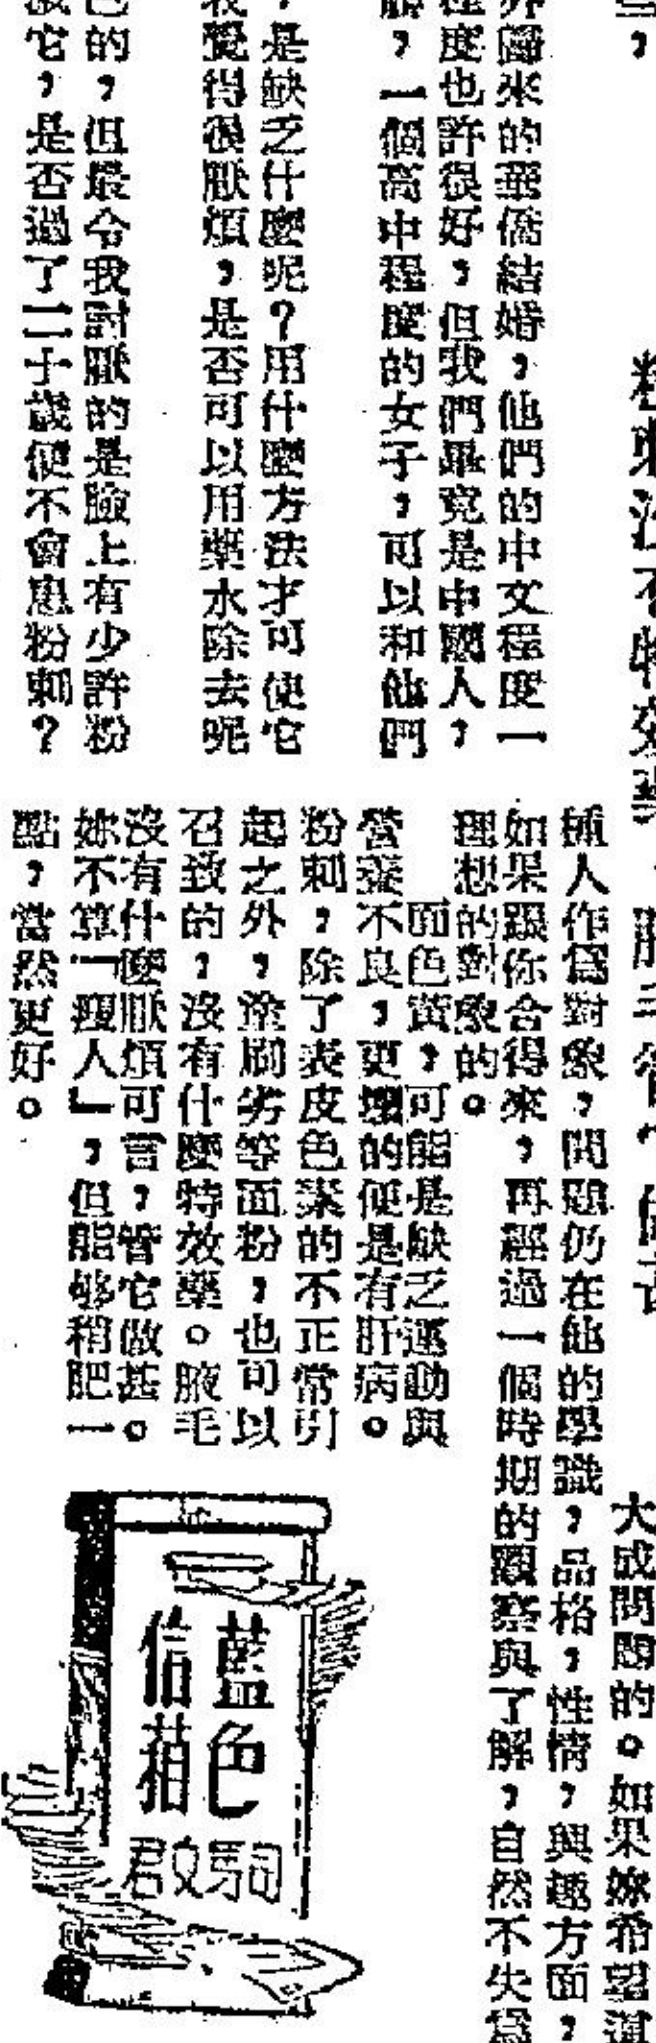 些，
外歸來的華僑結婚，他們的中文程度一
程度也許很好，但我們畢竟是中國人，
，一個高中程度的女子，可以和他們
，是缺乏什麼呢？用什麼方法才可使它
我覺得很厭煩，是否可以用藥水除去呢
色的，但最令我討厭的是臉上有少許粉
它，是否過了二十歲便不會患粉刺？
大成問題的。如果妳希望這
種人作爲對象，問題仍在他的學識，品格，性情，興趣方面，
如果跟你合得來，再經過一個時期的觀察與了解，自然不失爲
理想的對象的。
面色黃，可能是缺乏運動與
營養不良，更壞的便是有肝病。
粉刺，除了表皮色素的不正常引
起之外，塗刷劣等面粉，也可以
召致的，沒有什麼特效藥。腋毛
沒有什麼厭煩可言，管它做甚。
妳不算「瘦人」，但能够稍肥一
點，當然更好。
藍色
信箱
君文馭